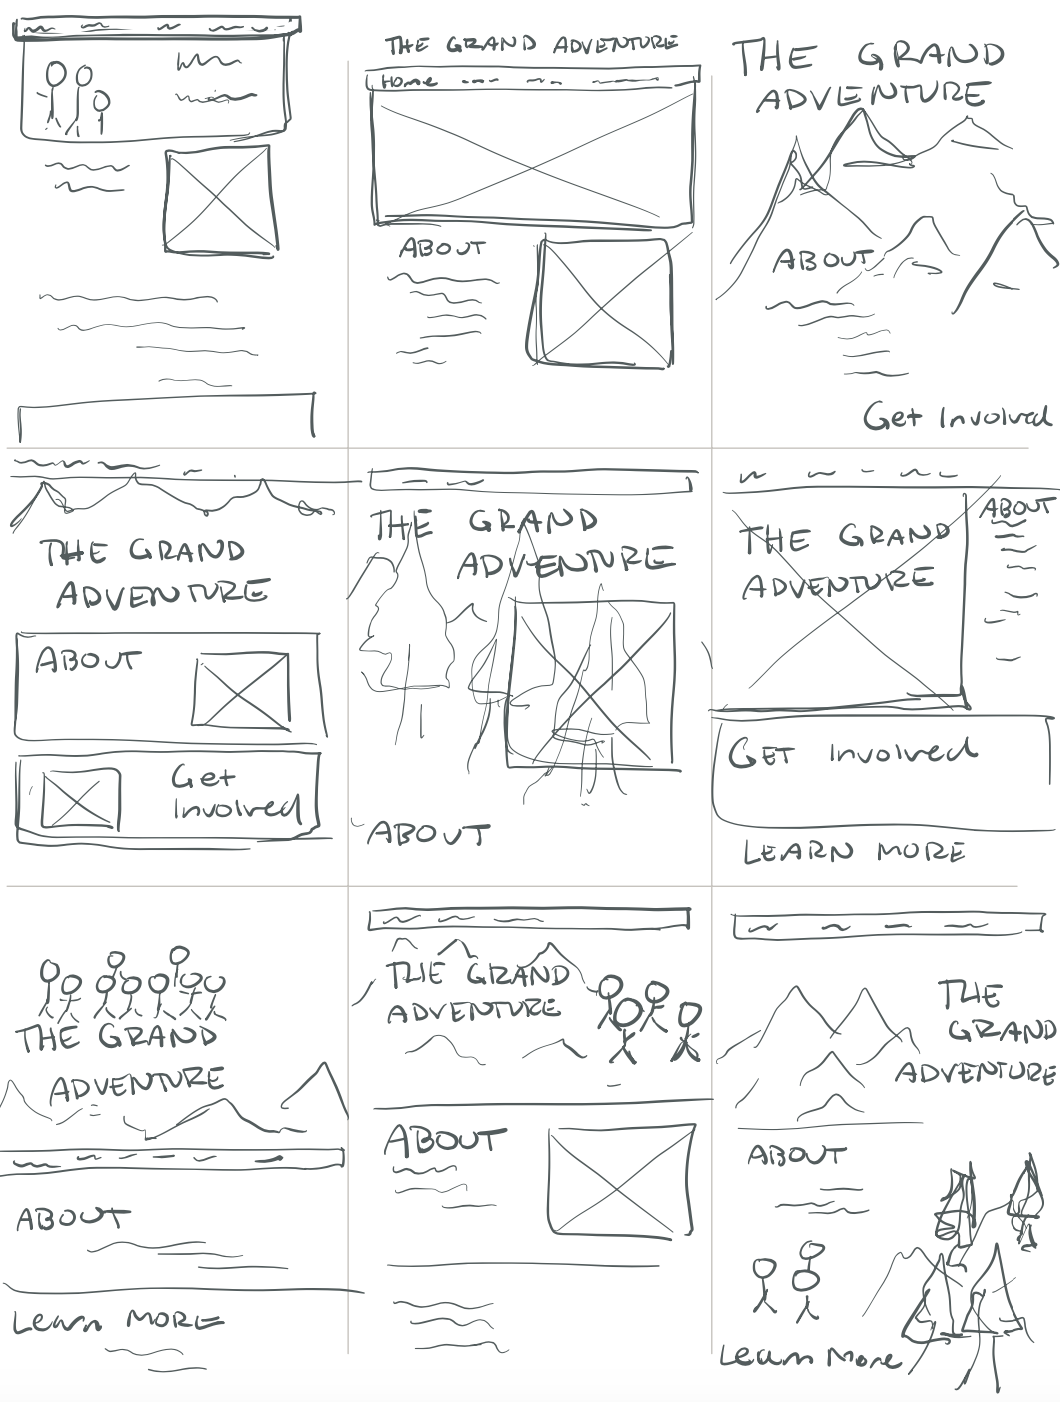 THE GRAND ADVENTURE
Home
ABOUT
THE GRAND
ADVENTURE
ABOUT
Get Involved
THE GRAND
ADVENTURE
ABOUT
Get
Involved
THE GRAND
ADVENTURE
ABOUT
THE GRAND
ADVENTURE
ABOUT
GET Involved
LEARN MORE
THE GRAND
ADVENTURE
ABOUT
Learn MORE
THE GRAND
ADVENTURE
ABOUT
THE
GRAND
ADVENTURE
ABOUT
Learn More